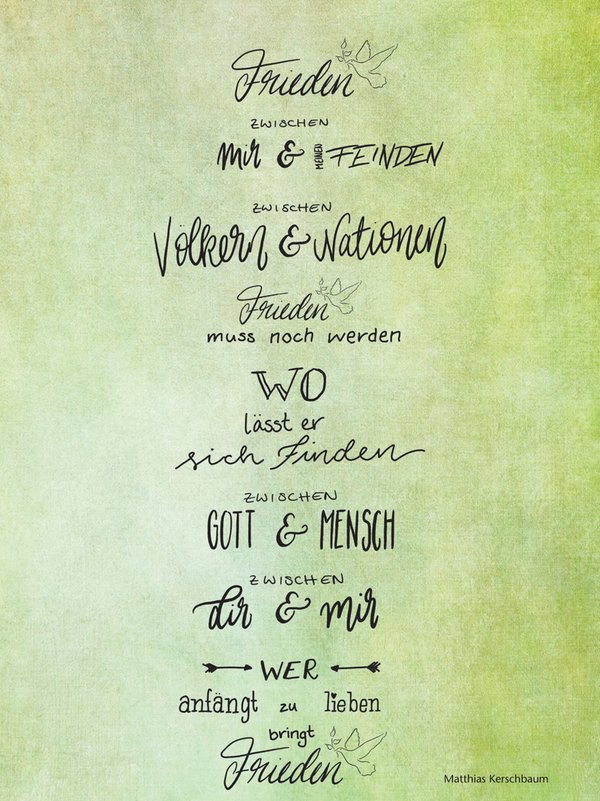 Frieden
ZWISCHEN
mir & MEINEN FEINDEN
ZWISCHEN
Völkern & Nationen
Frieden
muss noch werden
WO
lässt er
sich finden
ZWISCHEN
GOTT & MENSCH
ZWISCHEN
dir & mir
WER
anfängt zu lieben
bringt
Frieden
Matthias Kerschbaum